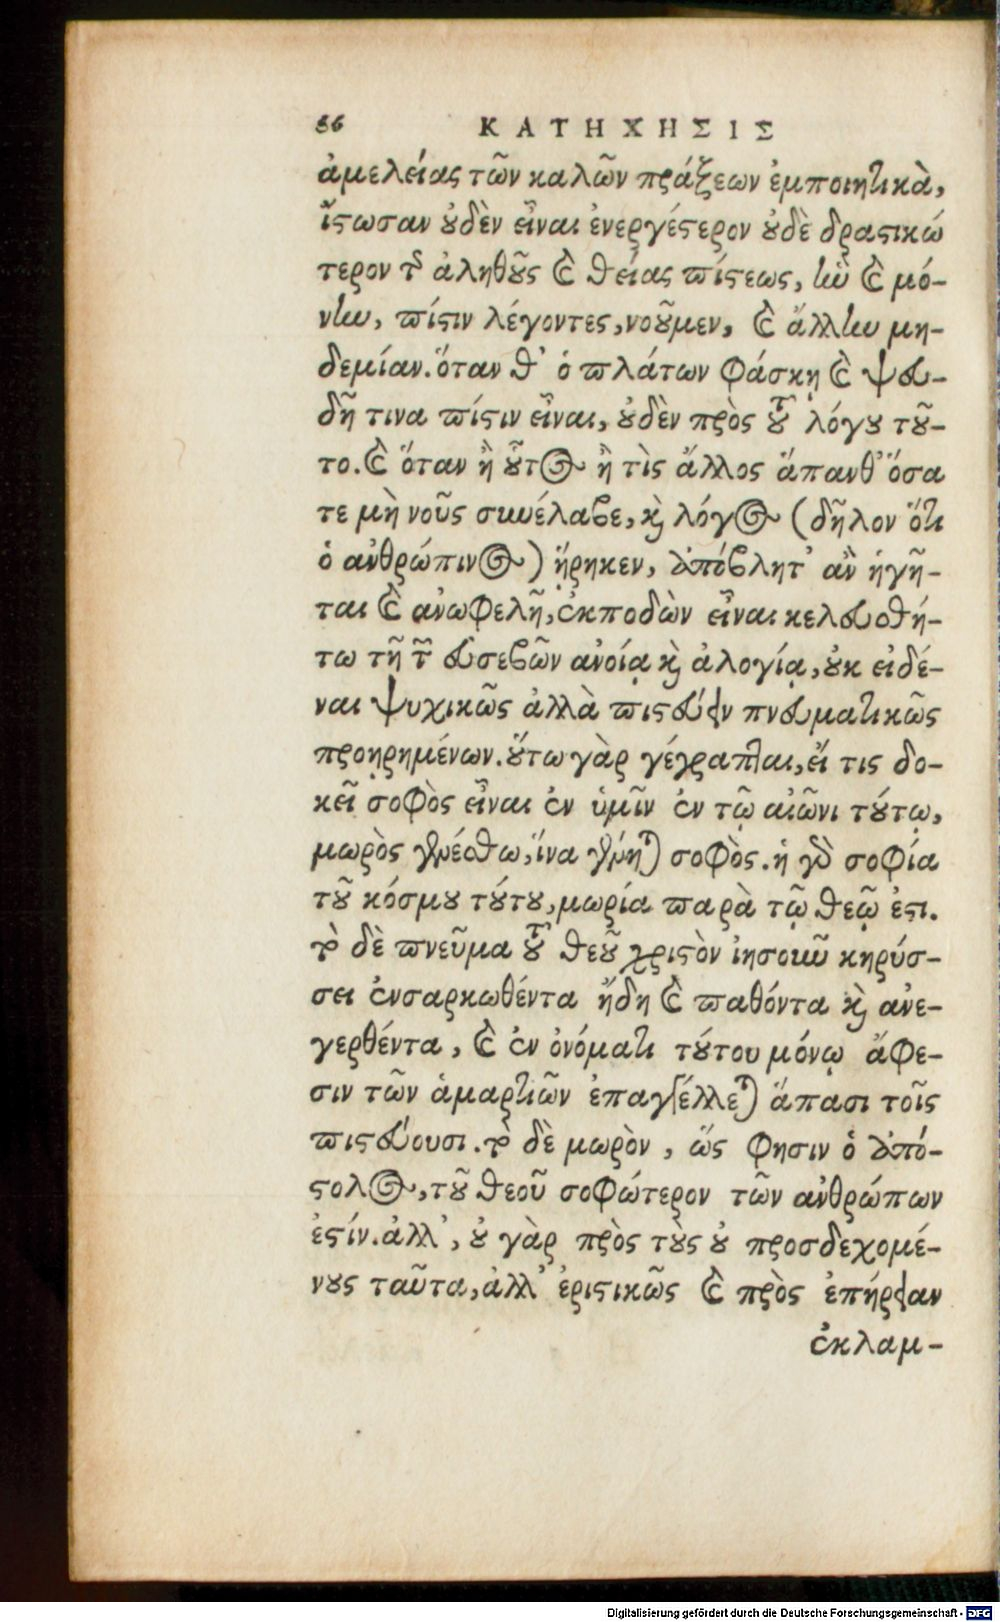 86 ΚΑΤΗΧΗΣΙΣ
ἀμελείας τῶν καλῶν πράξεων ἐμποιητικὰ,
ἴστωσαν οὐδὲν εἶναι ἐνεργέστερον οὐδὲ δραστικώ
τερον τῆς ἀληθοῦς καὶ θείας πίστεως, ἣν καὶ μό-
νην, πίστιν λέγοντες, νοοῦμεν, καὶ ἄλλην μη-
δεμίαν. ὅταν θ’ ὁ πλάτων φάσκῃ καὶ ψευ-
δῆ τινα πίστιν εἶναι, οὐδὲν πρὸς τοῦ λόγου τοῦ-
το. καὶ ὅταν ἢ οὗτος ἢ τὶς ἄλλος ἅπανθ’ ὅσα
τε μὴ νοῦς συνέλαβε, καὶ λόγος (δῆλον ὅτι
ὁ ἀνθρώπινος) ᾕρηκεν, ἀπόβλητ’ ἂν ἡγῆ-
ται καὶ ἀνωφελῆ, ἐκποδὼν εἶναι κελευσθή-
τω τῇ τῶν εὐσεβῶν ἀνοίᾳ καὶ ἀλογίᾳ, οὐκ εἰδέ-
ναι ψυχικῶς ἀλλὰ πιστεύειν πνευματικῶς
προῃρημένων. οὕτω γὰρ γέγραπται, εἴ τις δο-
κεῖ σοφὸς εἶναι ἐν ὑμῖν ἐν τῷ αἰῶνι τούτῳ,
μωρὸς γενέσθω, ἵνα γένηται σοφὸς. ἡ γὰρ σοφία
τοῦ κόσμου τούτου, μωρία παρὰ τῷ θεῷ ἐστι.
τὸ δὲ πνεῦμα τοῦ θεοῦ χριστὸν ἰησοῦν κηρύσ-
σει ἐνσαρκωθέντα ἤδη καὶ παθόντα καὶ ἀνε-
γερθέντα, καὶ ἐν ὀνόματι τούτου μόνῳ ἄφε-
σιν τῶν ἁμαρτιῶν ἐπαγγέλλεται ἅπασι τοῖς
πιστεύουσι. τὸ δὲ μωρὸν, ὥς φησιν ὁ ἀπό-
στολος, τοῦ θεοῦ σοφώτερον τῶν ἀνθρώπων
ἐστίν. ἀλλ’, οὐ γὰρ πρὸς τοὺς οὐ προσδεχομέ-
νους ταῦτα, ἀλλ’ ἐριστικῶς καὶ πρὸς ἐπήρειαν
ἐκλαμ-
Digitalisierung gefördert durch die Deutsche Forschungsgemeinschaft - DFG